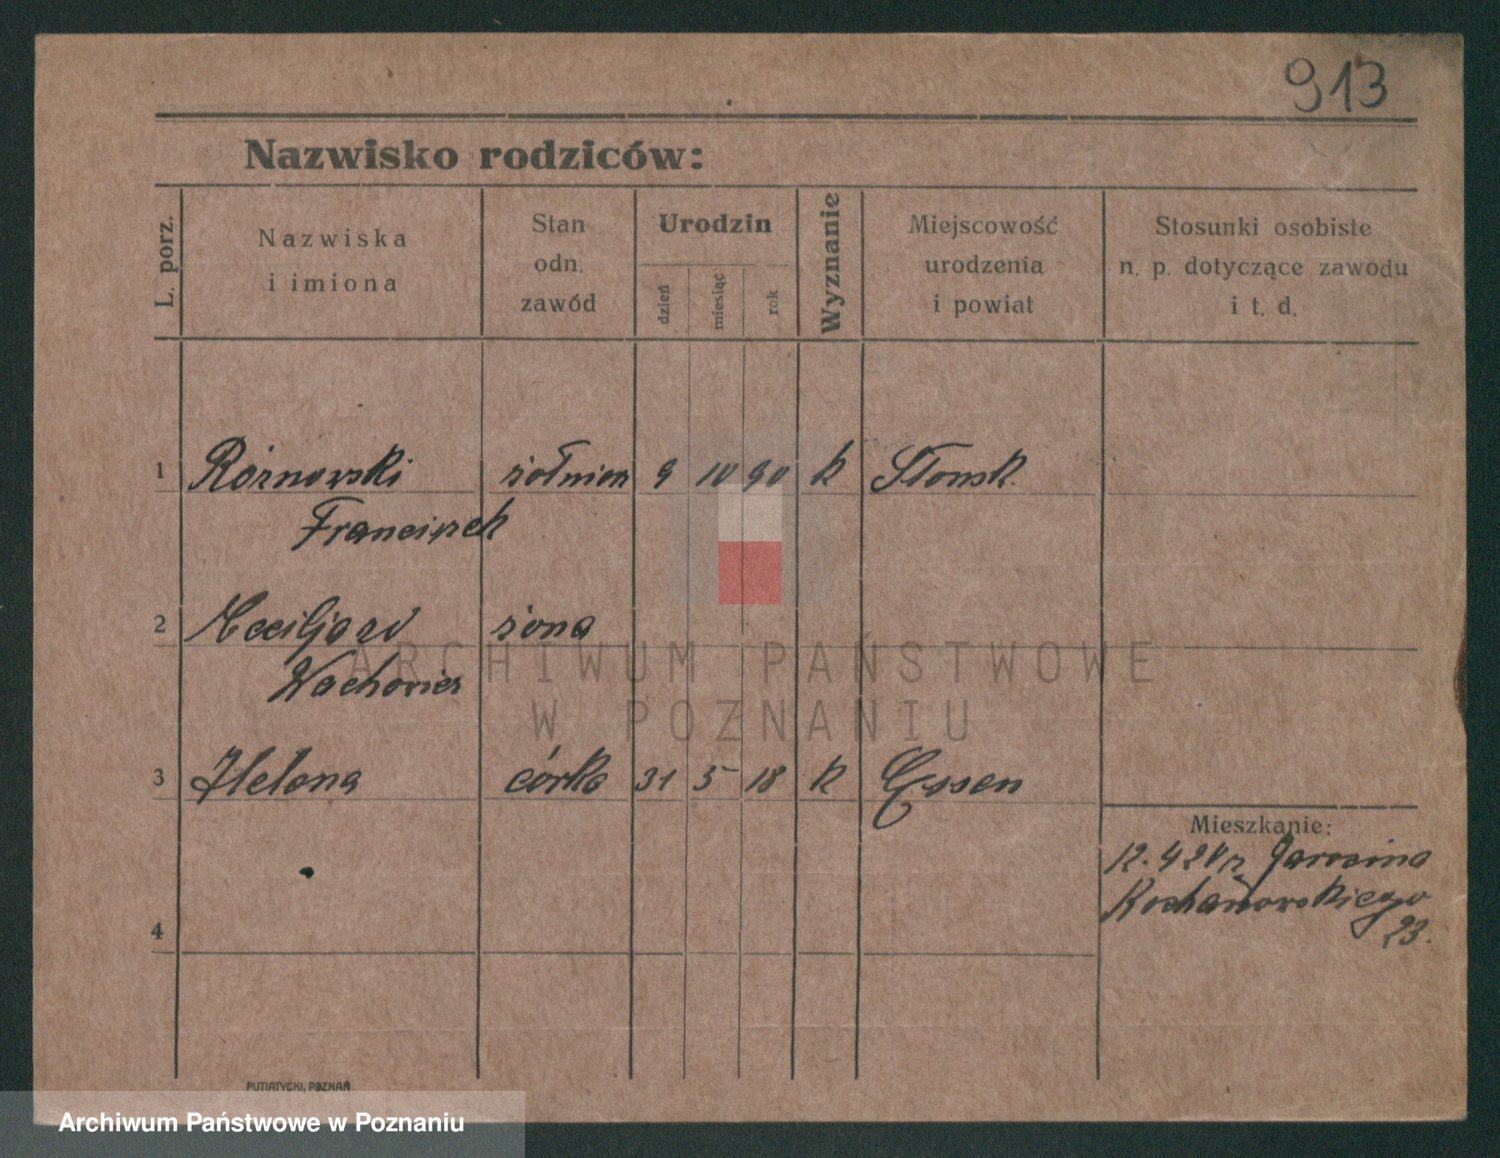 913
Nazwisko rodziców:
L. porz.
Nazwiska
i imiona
Stan
odn.
zawód
Urodzin
dzień
miesiąc
rok
Wyznanie
Miejscowość
urodzenia
i powiat
Stosunki osobiste
n. p. dotyczące zawodu
i t. d.
1 Rożnowski żołnierz 9 10 90 k Słonsk.
Franciszek
2 żona
3 Helena córka 31 5 18 k Essen
4
Mieszkanie:
12.4 Jarocina
Kochanowskiego
23.
PUTIATYCKI, POZNAŃ
ARCHIWUM PAŃSTWOWE
W POZNANIU
Archiwum Państwowe w Poznaniu